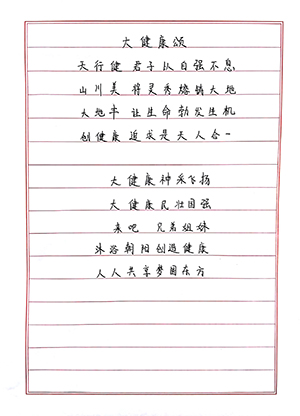 大健康颂
天行健 君子以自强不息
山川美 将灵秀熔铸大地
大地丰 让生命勃发生机
创健康 追求是天人合一
大健康神采飞扬
大健康民壮国强
来吧 兄弟姐妹
沐浴朝阳创造健康
人人共享梦圆东方